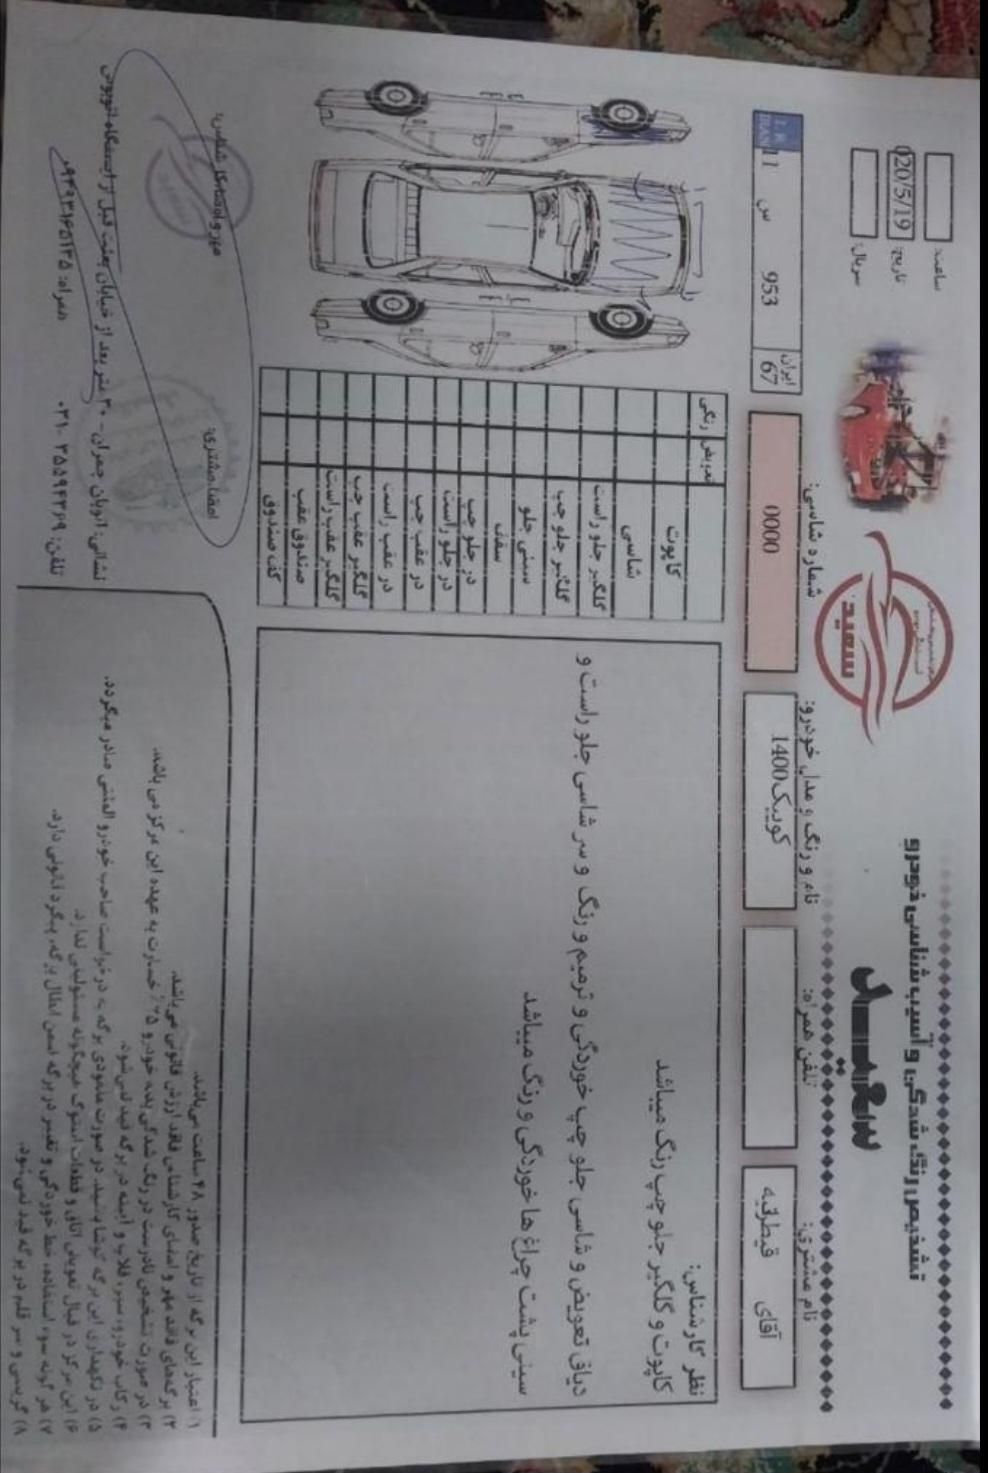 تشخیص رنگ شدگی و آسیب شناسی خودرو
سعید
سعید
ساعت:
تاریخ: 020/5/19
سریال:
نام مشتری: آقای قیطرقیه
تلفن همراه:
نام و رنگ و مدل خودرو: کوییک1400
شماره شاسی: 0000
I.R. IRAN
11 س 953
ایران 67
نظر کارشناس:
کاپوت و گلگیر جلو چپ رنگ میباشد
دیاق تعویض و شاسی جلو چپ خوردگی و ترمیم و رنگ و سر شاسی جلو راست و
سینی پشت چراغ ها خوردگی و رنگ میباشد
تعویض رنگی
کاپوت
شاسی
گلگیر جلو راست
گلگیر جلو چپ
سینی جلو
سقف
در جلو چپ
در جلو راست
در عقب چپ
در عقب راست
گلگیر عقب چپ
گلگیر عقب راست
صندوق عقب
کف صندوق
۱) اعتبار این برگه از تاریخ صدور ۴۸ ساعت می‌باشد.
۲) برگه‌های فاقد مهر و امضای کارشناس فاقد ارزش قانونی می‌باشد.
۳) در صورت تشخیص نادرست در رنگ شدگی بدنه خودرو ۲۵٪ خسارت به عهده این مرکز می باشد.
۴) رکاب خودرو، سپر، قلاب و آیینه در برگه قید نمی‌شود.
۵) در نگهداری این برگه کوشا باشید. در صورت مفقودی برگه به درخواست صاحب خودرو المثنی صادر میگردد.
۶) این مرکز در قبال تعویض اتاق و قطعات استوک هیچگونه مسئولیتی ندارد.
۷) هر گونه سوء استفاده، خط خوردگی و تغییر در برگه ضمن ابطال برگه، پیگرد قانونی دارد.
۸) گریسی و سر قلم در برگه قید نمی‌شود.
مهر و امضاء کارشناس:
امضا مشتری:
نشانی: اتوبان چمران - ۳۰ متر بعد از خیابان بعثت قبل از ایستگاه اتوبوس
تلفن: ۳۵۵۹۴۳۶۹ -۰۳۱ همراه: ۰۹۳۹۳۱۶۵۱۳۵